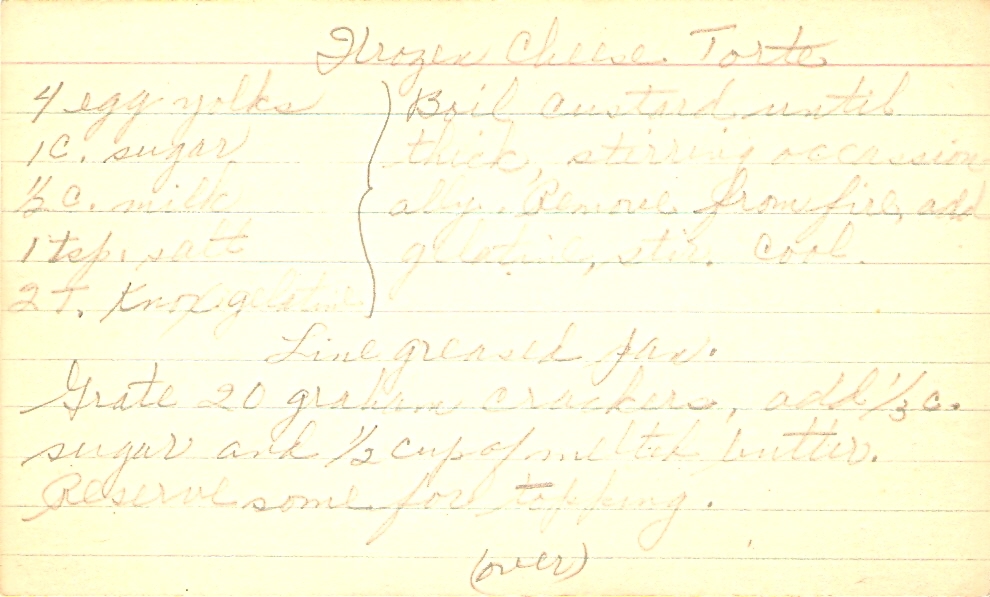 Frozen Cheese Torte
4 egg yolks
1 C. sugar
½ C. milk
1 tsp. salt
2 T. Knox gelatine
Boil custard until
thick, stirring occassion
ally. Remove from fire, add
gelatine, stir. Cool.
Line greased pan.
Grate 20 graham crackers, add ⅓ c.
sugar and ½ cup of melted butter.
Reserve some for topping.
(over)